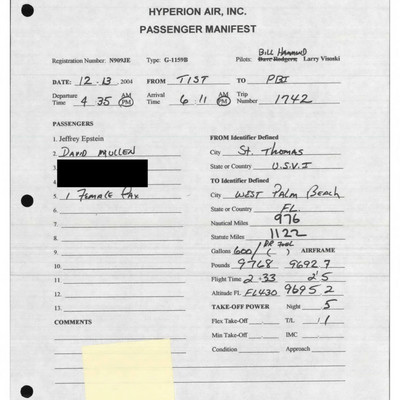 HYPERION AIR, INC.
PASSENGER MANIFEST
BILL HAMMOND
Registration Number: N909JE Type: G-1159B Pilots: Dave Rodgers, Larry Visoski
DATE: 12.13, 2004 FROM TIST TO PBI
Departure Time 4 35 AM PM Arrival Time 6 11 AM PM Trip Number 1742
PASSENGERS
1. Jeffrey Epstein
2. DAVID MULLEN
3.
4.
5. 1 FEMALE PAX
6.
7.
8.
9.
10.
11.
12.
13.
COMMENTS
FROM Identifier Defined
City ST. THOMAS
State or Country U.S.V.I
TO Identifier Defined
City WEST PALM BEACH
State or Country FL.
Nautical Miles 976
Statute Miles 1122
Gallons 600/ ( ) AIRFRAME
Pounds 9768 9692 7
Flight Time 2.33 2'5
Altitude FL FL430 9695 2
TAKE-OFF POWER Night 5
Flex Take-Off T/L /1
Min Take-Off IMC
Condition Approach